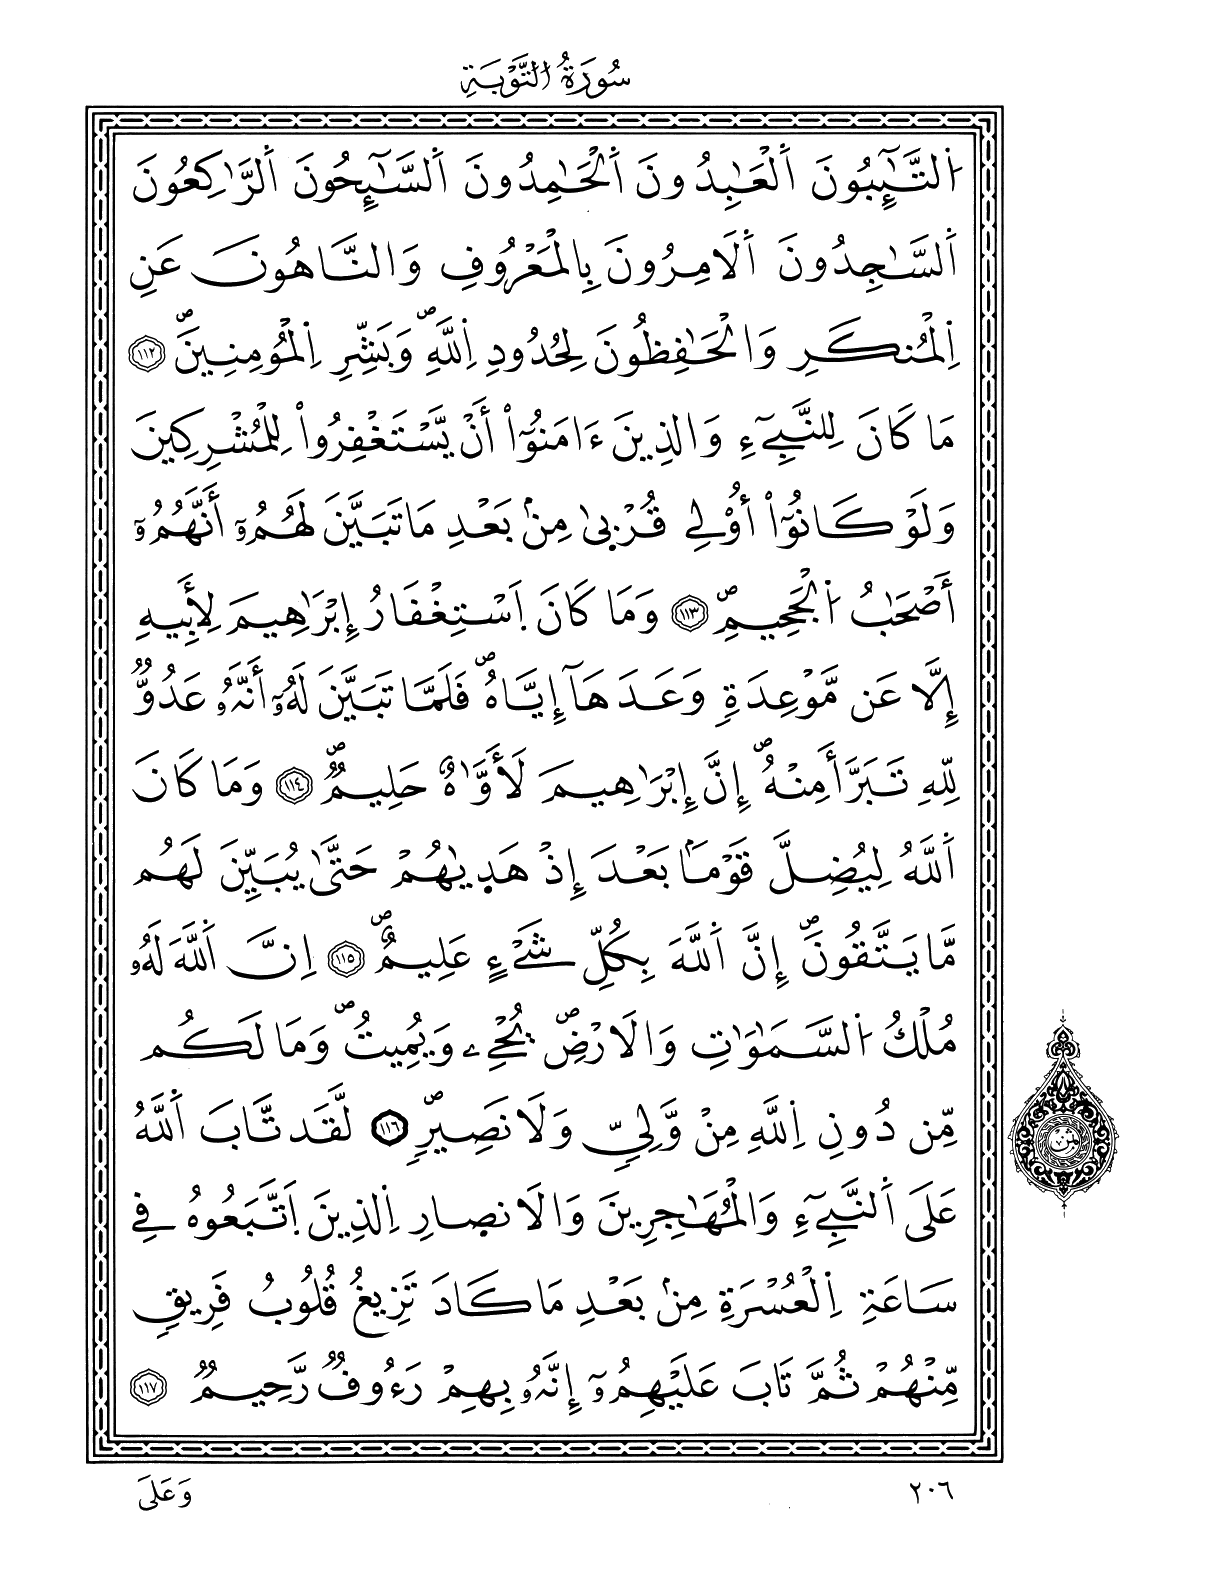 سُورَةُ التَّوْبَةِ
اَ۬لتَّٰٓئِبُونَ اَ۬لْعَٰبِدُونَ اَ۬لْحَٰمِدُونَ اَ۬لسَّٰٓئِحُونَ اَ۬لرَّٰكِعُونَ
اَ۬لسَّٰجِدُونَ اَ۬لَامِرُونَ بِالْمَعْرُوفِ وَالنَّاهُونَ عَنِ
اِ۬لْمُنكَرِ وَالْحَٰفِظُونَ لِحُدُودِ اِ۬للَّهِۖ وَبَشِّرِ اِ۬لْمُؤْمِنِينَۖ ١١٢
مَا كَانَ لِلنَّبِيٓءِ وَالذِينَ ءَامَنُوٓاْ أَنْ يَّسْتَغْفِرُواْ لِلْمُشْرِكِينَ
وَلَوْ كَانُوٓاْ أُوْلِے قُرْبۭيٰ مِنۢ بَعْدِ مَا تَبَيَّنَ لَهُمُۥٓ أَنَّهُمُۥٓ
أَصْحَٰبُ اُ۬لْجَحِيمِۖ ١١٣ وَمَا كَانَ اَ۪سْتِغْفَارُ إِبْرَٰهِيمَ لِأَبِيهِ
إِلَّا عَن مَّوْعِدَةٖ وَعَدَهَآ إِيَّاهُۖ فَلَمَّا تَبَيَّنَ لَهُۥٓ أَنَّهُۥ عَدُوّٞ
لِّلهِ تَبَرَّأَ مِنْهُۖ إِنَّ إِبْرَٰهِيمَ لَأَوَّٰهٌ حَلِيمٞۖ ١١٤ وَمَا كَانَ
اَ۬للَّهُ لِيُضِلَّ قَوْماَۢ بَعْدَ إِذْ هَدۭيٰهُمْ حَتَّىٰ يُبَيِّنَ لَهُم
مَّا يَتَّقُونَۖ إِنَّ اَ۬للَّهَ بِكُلِّ شَےْءٍ عَلِيمٌۖ ١١٥ اِنَّ اَ۬للَّهَ لَهُۥ
مُلْكُ اُ۬لسَّمَٰوَٰتِ وَالَارْضِۖ يُحْيِۦ وَيُمِيتُۖ وَمَا لَكُم
مِّن دُونِ اِ۬للَّهِ مِنْ وَّلِيّٖ وَلَا نَصِيرٖۖ ١١٦ لَّقَد تَّابَ اَ۬للَّهُ
عَلَى اَ۬لنَّبِيٓءِ وَالْمُهَٰجِرِينَ وَالَانصارِ اِ۬لذِينَ اَ۪تَّبَعُوهُ فِے
سَاعَةِ اِ۬لْعُسْرَةِ مِنۢ بَعْدِ مَا كَادَ تَزِيغُ قُلُوبُ فَرِيقٖ
مِّنْهُمْ ثُمَّ تَابَ عَلَيْهِمُۥٓ إِنَّهُۥ بِهِمْ رَءُوفٞ رَّحِيمٞ ١١٧
ثمن
٢٠٦
وَعَلَى